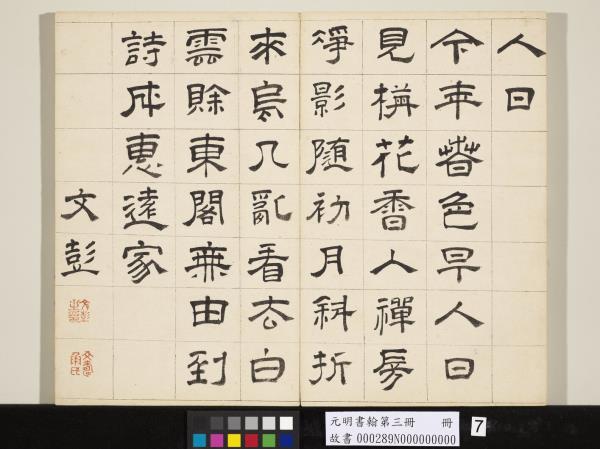 人日
今年春色早人日
見梅花香入禪房
淨影隨初月斜折
來烏几亂看去白
雲賒東閣無由到
詩成惠遠家
文彭
文彭之印
文壽承氏
元明書翰第三冊 冊
故書 000289N000000000
7